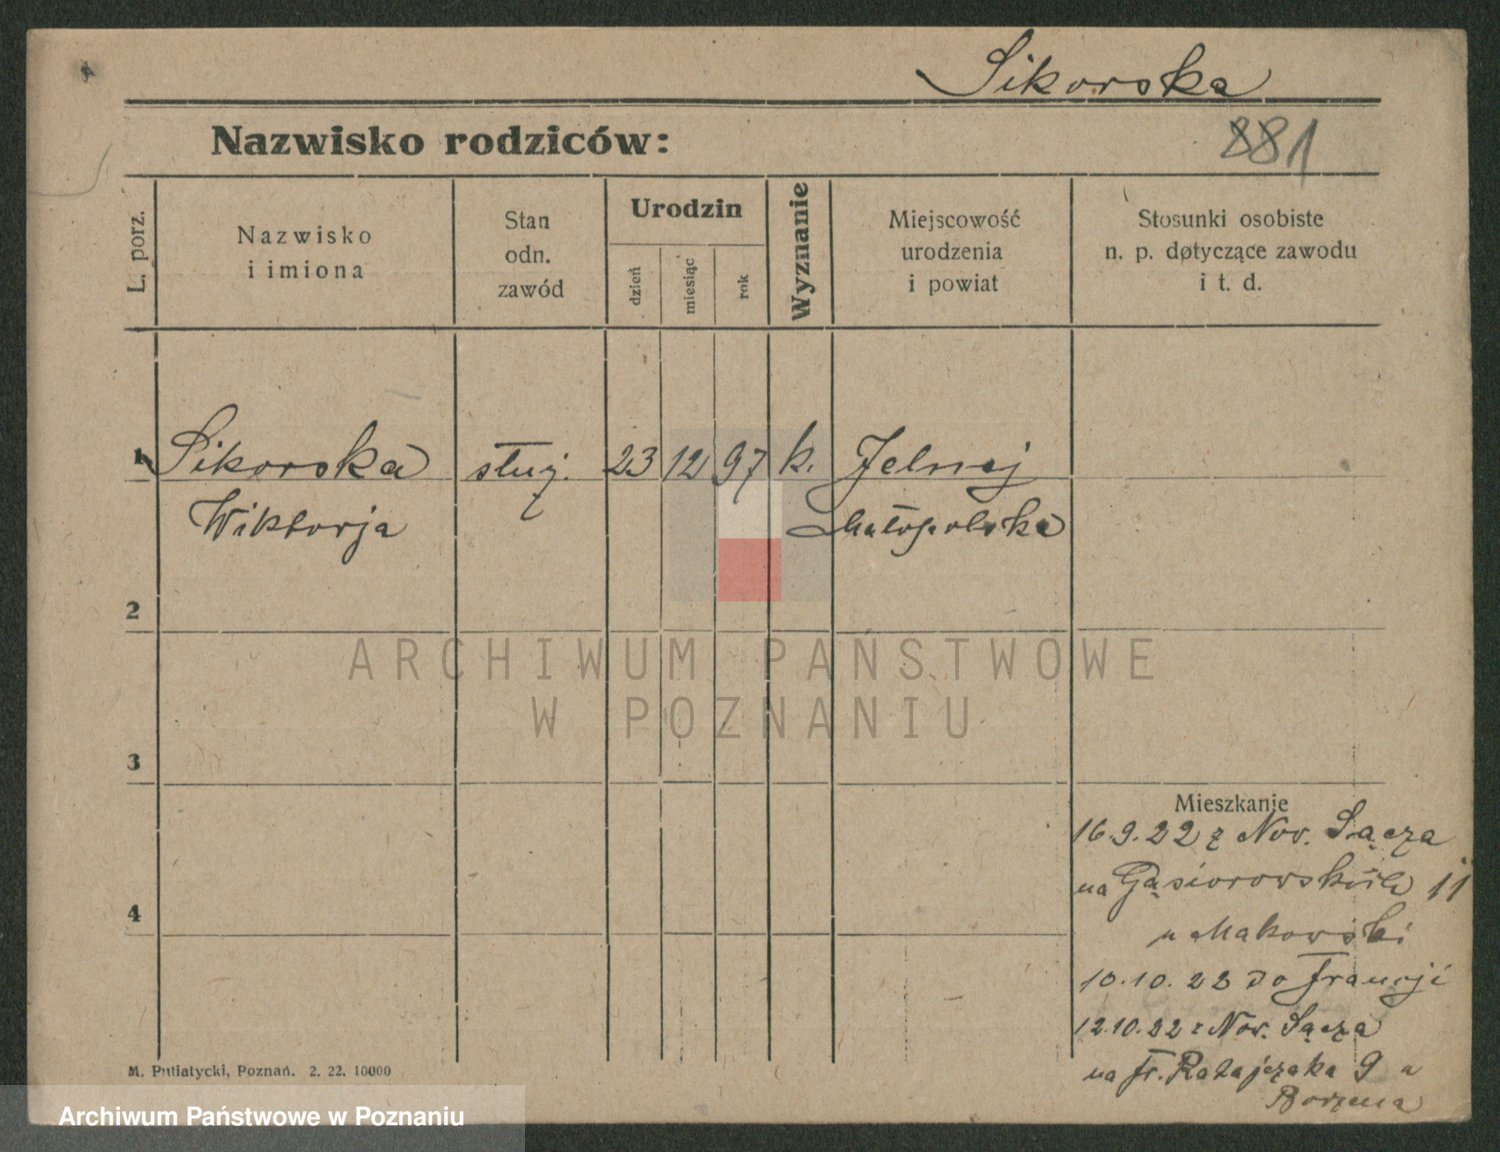 Sikorska
Nazwisko rodziców:
881
L. porz.
Nazwisko
i imiona
Stan
odn.
zawód
Urodzin
dzień
miesiąc
rok
Wyznanie
Miejscowość
urodzenia
i powiat
Stosunki osobiste
n. p. dotyczące zawodu
i t. d.
1 Sikorska służ. 23 12 97 k. Jelnej
Wiktorja Małopolska
2
3
4
Mieszkanie
16.9.22 z Nov. Sącza
na Gąsiorowskich 11
u Makowski
10.10.22 do Francji
12.10.22 z Nov. Sącza
na Fr. Ratajczaka 9 u
M. Putiatycki, Poznań. 2. 22. 10000
ARCHIWUM PAŃSTWOWE
W POZNANIU
Archiwum Państwowe w Poznaniu